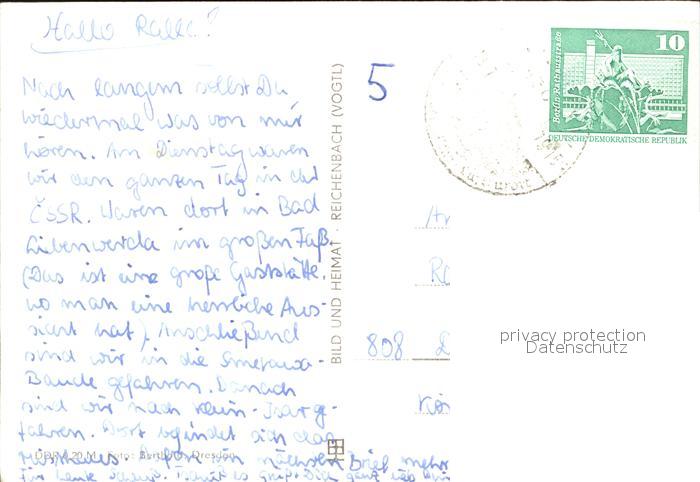 Hallo Ralla!
Nach langem sollst Du
wiedermal was von mir
hören. Am Dienstag waren
wir den ganzen Tag in der
ČSSR. Waren dort in Bad
Libenwerda im großen Faß.
(Das ist eine große Gaststätte,
wo man eine herrliche Aus-
sicht hat). Anschließend
sind wir in die
Baude gefahren. Danach
sind wir nach Klein-Isar ge-
fahren. Dort befindet sich das
Davon im nächsten Brief mehr
Für heute Grüßt Dich ganz lieb
BILD UND HEIMAT · REICHENBACH (VOGTL)
5
10
Berlin, Rathausstraße
DEUTSCHE DEMOKRATISCHE REPUBLIK
808 D
privacy protection
Datenschutz
Foto: Dresden